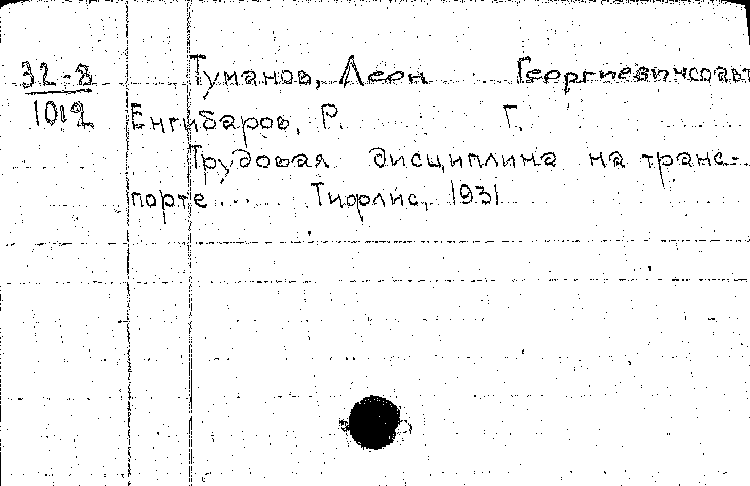 32-8
1012
Туманов, Леон Георгиевич соавт
Енгибаров, Р. Г.
Трудовая дисциплина на транс-
порте ... Тифлис, 1931